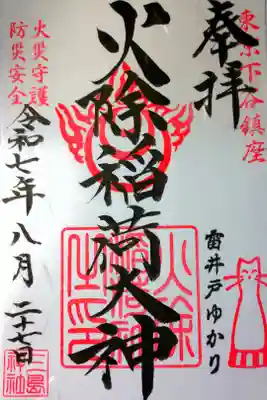 東京下谷鎮座
奉拝
火除稲荷大神
雷井戸ゆかり
火災守護
防災安全
令和七年八月二十七日
三島神社